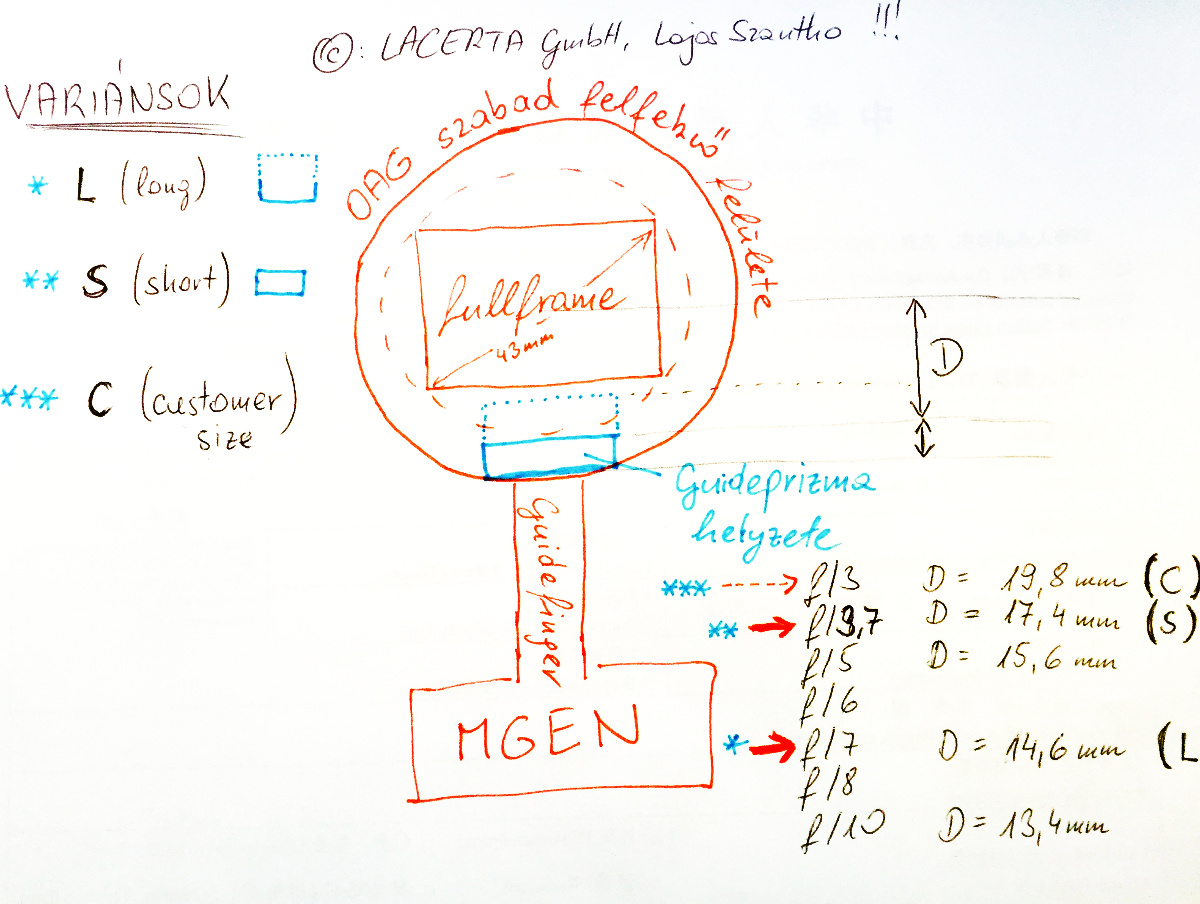 ©: LACERTA GmbH, Lajos Szantho !!!
VARIÁNSOK
* L (long)
** S (short)
*** C (customer size)
OAG szabad felfekvő felülete
fullframe
43mm
D
Guideprizma
helyzete
Guidefinger
MGEN
*** f/3 D = 19,8 mm (C)
** f/3,7 D = 17,4 mm (S)
f/5 D = 15,6 mm
f/6
* f/7 D = 14,6 mm (L
f/8
f/10 D = 13,4mm